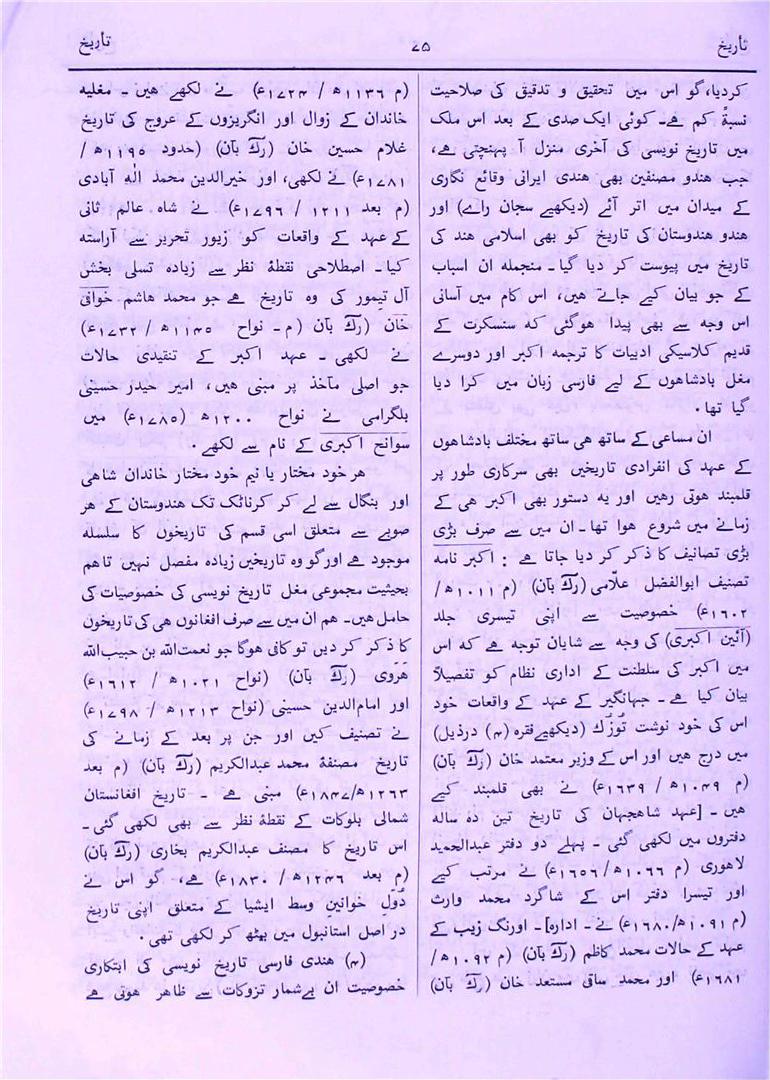 تاریخ
۷۵
تاریخ
کردیا، گو اس میں تحقیق و تدقیق کی صلاحیت
نسبۃً کم ہے۔ کوئی ایک صدی کے بعد اس ملک
میں تاریخ نویسی کی آخری منزل آ پہنچتی ہے،
جب ہندو مصنفین بھی ہندی ایرانی وقائع نگاری
کے میدان میں اتر آئے (دیکھیے سجان راے) اور
ہندو ہندوستان کی تاریخ کو بھی اسلامی ہند کی
تاریخ میں پیوست کر دیا گیا۔ منجملہ ان اسباب
کے جو بیان کیے جاتے ہیں، اس کام میں آسانی
اس وجہ سے بھی پیدا ہوگئی کہ سنسکرت کے
قدیم کلاسیکی ادبیات کا ترجمہ اکبر اور دوسرے
مغل بادشاہوں کے لیے فارسی زبان میں کرا دیا
گیا تھا۔
ان مساعی کے ساتھ ہی ساتھ مختلف بادشاہوں
کے عہد کی انفرادی تاریخیں بھی سرکاری طور پر
قلمبند ہوتی رہیں اور یہ دستور بھی اکبر ہی کے
زمانے میں شروع ہوا تھا۔ ان میں سے صرف بڑی
بڑی تصانیف کا ذکر کر دیا جاتا ہے : اکبر نامہ
تصنیف ابوالفضل علّامی (رکّ بآن) (م ۱۰۱۱ھ/
۱۶۰۲ء) خصوصیت سے اپنی تیسری جلد
(آئین اکبری) کی وجہ سے شایان توجہ ہے کہ اس
میں اکبر کی سلطنت کے اداری نظام کو تفصیلاً
بیان کیا ہے۔ جہانگیر کے عہد کے واقعات خود
اس کی خود نوشت تُوزُک (دیکھیے فقرہ (۴) درذیل)
میں درج ہیں اور اس کے وزیر معتمد خان (رکّ بآن)
(م ۱۰۴۹ھ / ۱۶۳۹ء) نے بھی قلمبند کیے
ہیں۔ [عہد شاہجہان کی تاریخ تین دہ سالہ
دفتروں میں لکھی گئی۔ پہلے دو دفتر عبدالحمید
لاہوری (م ۱۰۶۶ھ/۱۶۵۶ء) نے مرتب کیے
اور تیسرا دفتر اس کے شاگرد محمد وارث
(م ۱۰۹۱ھ/۱۶۸۰ء) نے۔ ادارہ]۔ اورنگ زیب کے
عہد کے حالات محمد کاظم (رکّ بآن) (م ۱۰۹۲ھ/
۱۶۸۱ء) اور محمد ساقی مستعد خان (رکّ بآن)
(م ۱۱۳۶ھ / ۱۷۲۴ء) نے لکھے ہیں۔ مغلیہ
خاندان کے زوال اور انگریزوں کے عروج کی تاریخ
غلام حسین خان (رکّ بآن) (حدود ۱۱۹۵ھ /
۱۷۸۱ء) نے لکھی، اور خیرالدین محمد الٰہ آبادی
(م بعد ۱۲۱۱ / ۱۷۹۶ء) نے شاہ عالم ثانی
کے عہد کے واقعات کو زیور تحریر سے آراستہ
کیا۔ اصطلاحی نقطۂ نظر سے زیادہ تسلی بخش
آل تیمور کی وہ تاریخ ہے جو محمد ہاشم خوافی
خان (رکّ بآن) (م۔ نواح ۱۱۴۵ھ / ۱۷۳۲ء)
نے لکھی۔ عہد اکبر کے تنقیدی حالات
جو اصلی مآخذ پر مبنی ہیں، امیر حیدر حسینی
بلگرامی نے نواح ۱۲۰۰ھ (۱۷۸۵ء) میں
سوانح اکبری کے نام سے لکھے۔
ہر خود مختار یا نیم خود مختار خاندان شاہی
اور بنگال سے لے کر کرناٹک تک ہندوستان کے ہر
صوبے سے متعلق اسی قسم کی تاریخوں کا سلسلہ
موجود ہے اور گو وہ تاریخیں زیادہ مفصل نہیں تاہم
بحیثیت مجموعی مغل تاریخ نویسی کی خصوصیات کی
حامل ہیں۔ ہم ان میں سے صرف افغانوں ہی کی تاریخوں
کا ذکر کر دیں تو کافی ہوگا جو نعمت اللہ بن حبیب اللہ
ہَرَوی (رکّ بآن) (نواح ۱۰۲۱ھ / ۱۶۱۲ء)
اور امام الدین حسینی (نواح ۱۲۱۳ھ / ۱۷۹۸ء)
نے تصنیف کیں اور جن پر بعد کے زمانے کی
تاریخ مصنفۂ محمد عبدالکریم (رکّ بآن) (م بعد
۱۲۶۳ھ/۱۸۴۷ء) مبنی ہے۔ تاریخ افغانستان
شمالی بلوکات کے نقطۂ نظر سے بھی لکھی گئی۔
اس تاریخ کا مصنف عبدالکریم بخاری (رکّ بآن)
(م بعد ۱۲۴۶ھ / ۱۸۳۰ء) ہے، گو اس نے
دُوَل خوانین وسط ایشیا کے متعلق اپنی تاریخ
در اصل استانبول میں بیٹھ کر لکھی تھی۔
(۴) ہندی فارسی تاریخ نویسی کی ابتکاری
خصوصیت ان بےشمار تزوکات سے ظاہر ہوتی ہے